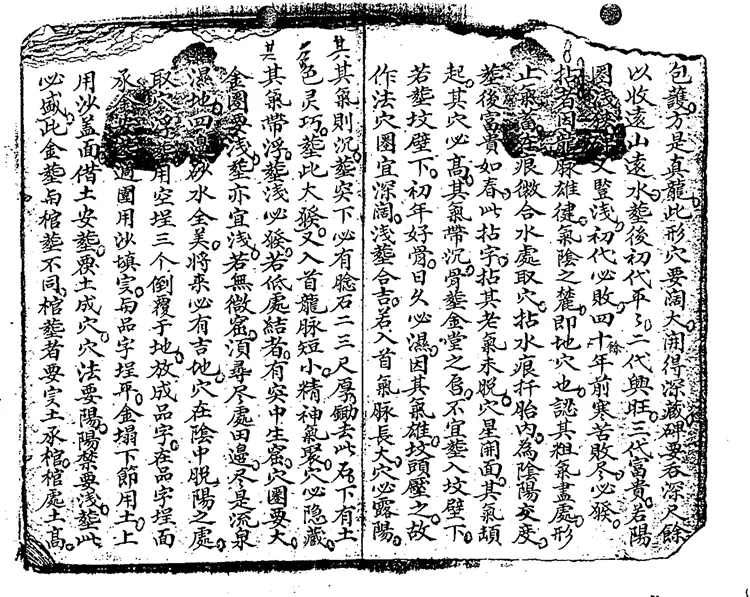 包護方是真龍此形穴要闊大開得深藏碑要吞深尺餘
以收遠山遠水塟後初代平〻二代興旺三代富貴若陽
圈淺又豎淺初代必敗四十餘年前寒苦敗尽必發
拈者因龍脉雄健氣陰之麓即地穴也認其粗氣盡處形
止氣蓄在痕微合水處取穴拈水痕扦胎內為陰陽交度
塟後富貴如春此拈字拈其老氣未脫穴星開面其氣頡
起其穴必高其氣帶沉骨塟金堂之色不宜塟入坟壁下
若塟坟壁下初年好骨日久必濕因其氣雄坟頭壓之故
作法穴圈宜深闊淺塟合吉若入首氣脉長大穴必露陽
其氣則沉塟突下必有唸石二三尺厚鋤去此石下有土
色灵巧塟此大發又入首龍脉短小精神氣聚穴必隐藏
其氣帶浮塟淺必發若低處結者有突中生窩穴圈要大
金圈要淺塟亦宜淺若無微窩須尋尽處田邊尽是流泉
濕地四邊砂水全美將來必有吉地穴在陰中脫陽之處
取穴浮塟用空埕三个倒覆于地放成品字在品字埕面
承金安塟週圍用沙填実与品字埕平金塌下節用土上
用沙盖面借土安塟畏土成穴穴法要陽陽禁要淺塟此
必盛此金塟与棺塟不同棺塟者要実土承棺棺處土高